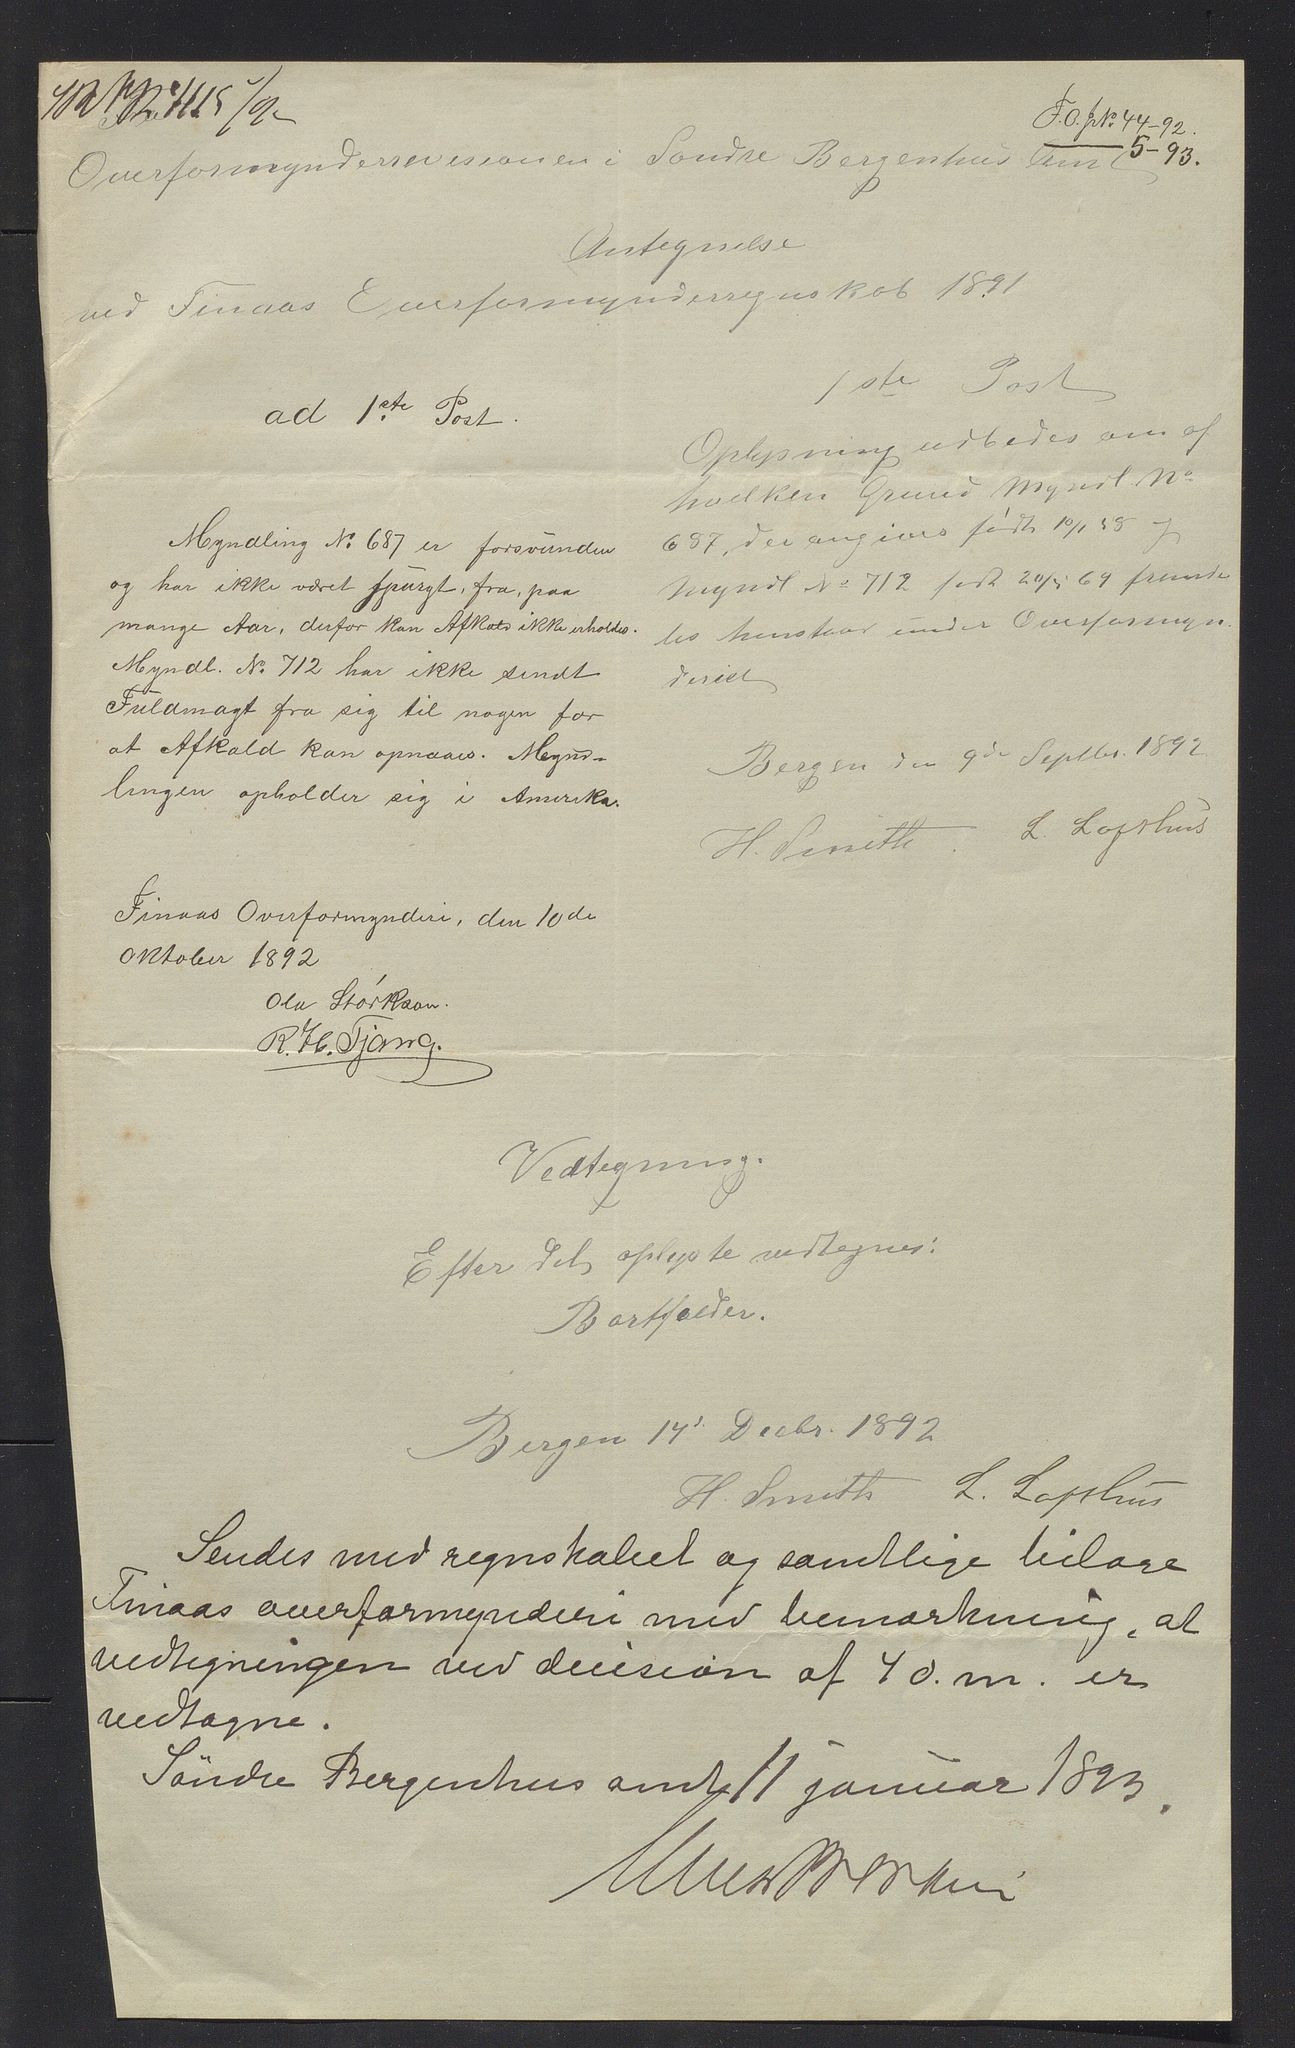 F.O. jNo. 44-92.
5-93.
Overformynderrevisionen i Søndre Bergenhus Amt
Antegnelse
ved Finaas Overformynderregnskab 1891
1ste Post
Oplysning udbedes om af
hvilken Grund Myndl. No
687, der angives født 10/1 58 og
Myndl No 712 født 20/5 69 fremde
les henstaar under Overformyn
deriet
Bergen den 9de Septbr. 1892
H. Smith. L. Lofthus
ad 1ste Post.
Myndling No. 687 er forsvunden
og har ikke været spurgt, fra, paa
mange Aar, derfor kan Afkald ikke erholdes.
Myndl. No. 712 har ikke sendt
Fuldmagt fra sig til nogen for
at Afkald kan opnaaes. Mynd-
lingen opholder sig i Amerika.
Finaas Overformynderi, den 10de
Oktober 1892
Ola Størkson.
R. H. Tjong.
Vedtegning.
Efter det oplyste vedtegnes:
Bortfalder.
Bergen 14d. Decbr. 1892
H. Smith L. Lofthus
Sendes med regnskabet og samtlige bilage
Finaas overformynderi med bemærkning, at
vedtegningen ved decision af 4 d. m. er
vedtagne.
Søndre Bergenhus amt 11 januar 1893.